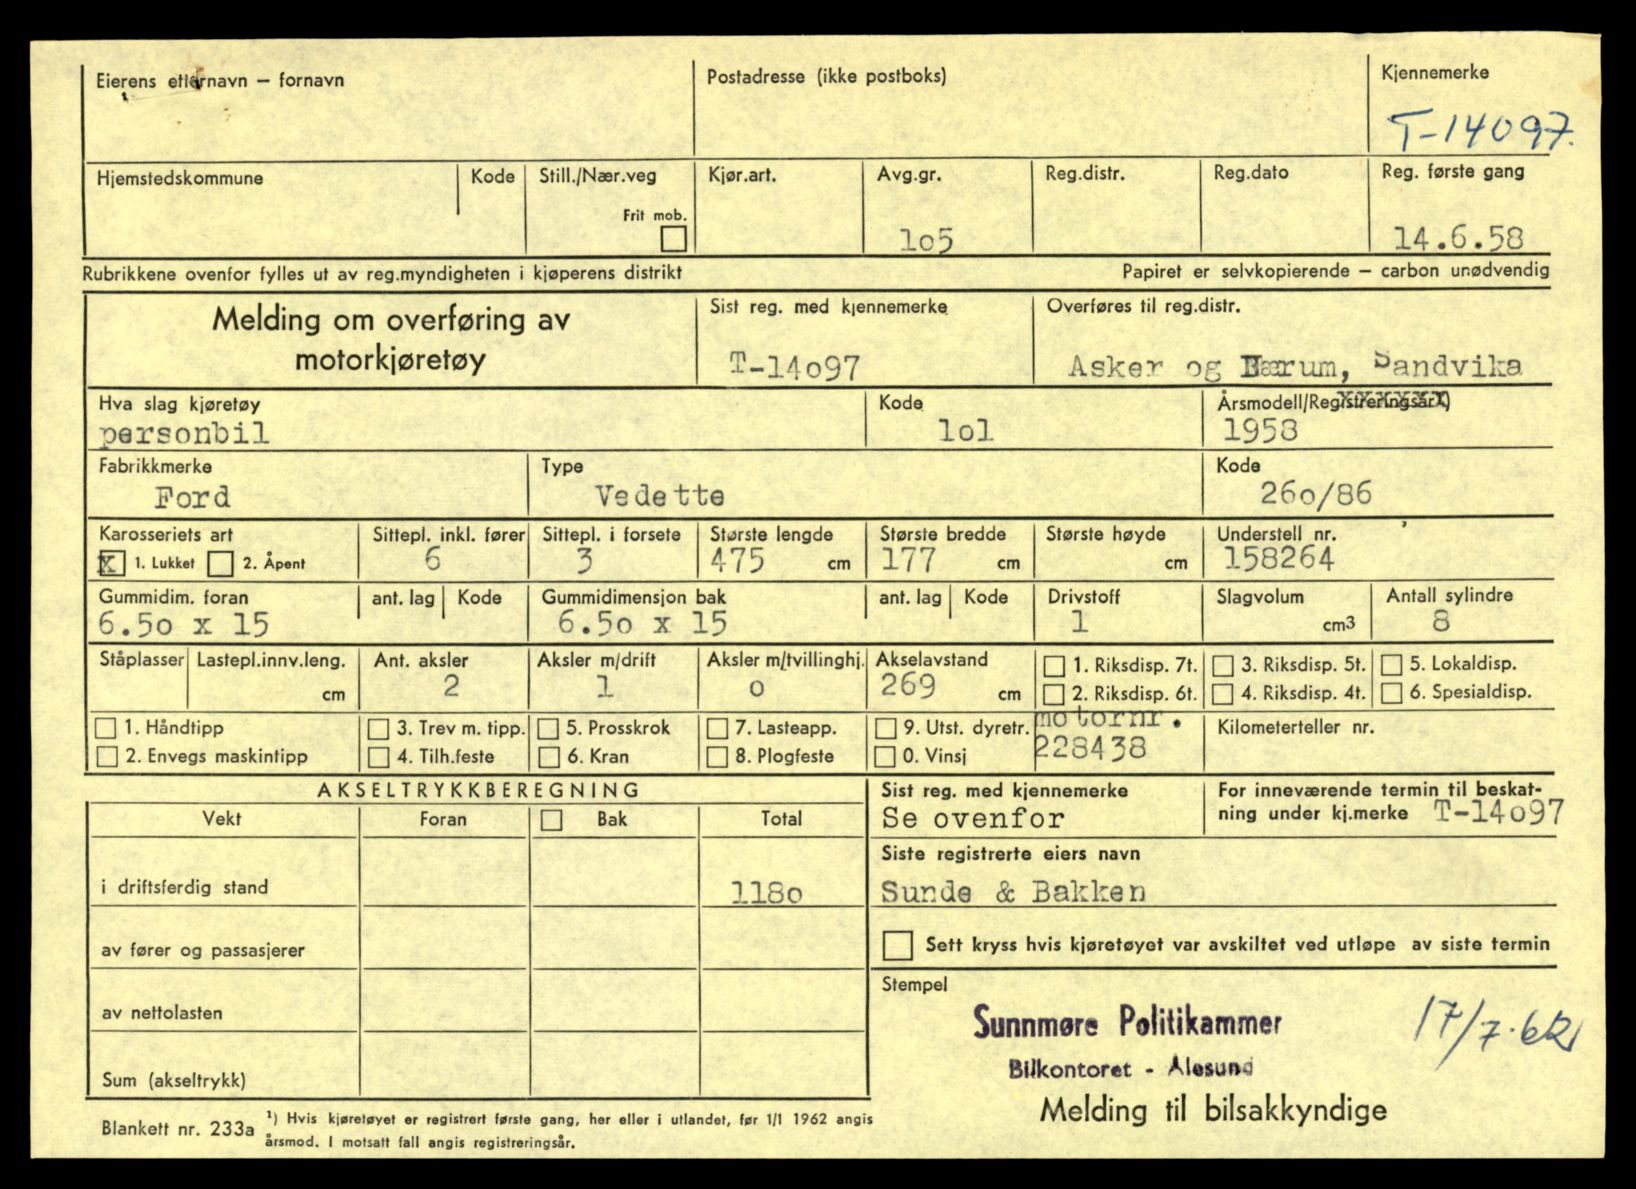 Eierens etternavn – fornavn
Postadresse (ikke postboks)
Kjennemerke
T-14097.
Hjemstedskommune
Kode
Still./Nær.veg
Frit mob.
Kjør.art.
Avg.gr.
lo5
Reg.distr.
Reg.dato
Reg. første gang
14.6.58
Rubrikkene ovenfor fylles ut av reg.myndigheten i kjøperens distrikt
Papiret er selvkopierende – carbon unødvendig
Melding om overføring av
motorkjøretøy
Sist reg. med kjennemerke
T-14o97
Overføres til reg.distr.
Asker og Bærum, Sandvika
Hva slag kjøretøy
personbil
Kode
lol
Årsmodell/Registreringsår¹)
1958
Fabrikkmerke
Ford
Type
Vedette
Kode
26o/86
Karosseriets art
X 1. Lukket 2. Åpent
Sittepl. inkl. fører
6
Sittepl. i forsete
3
Største lengde
475 cm
Største bredde
177 cm
Største høyde
cm
Understell nr.
158264
Gummidim. foran
6.5o x 15
ant. lag
Kode
Gummidimensjon bak
6.5o x 15
ant. lag
Kode
Drivstoff
1
Slagvolum
cm3
Antall sylindre
8
Ståplasser
Lastepl.innv.leng.
cm
Ant. aksler
2
Aksler m/drift
1
Aksler m/tvillinghj.
o
Akselavstand
269 cm
1. Riksdisp. 7t.
2. Riksdisp. 6t.
3. Riksdisp. 5t.
4. Riksdisp. 4t.
5. Lokaldisp.
6. Spesialdisp.
1. Håndtipp
2. Envegs maskintipp
3. Trev m. tipp.
4. Tilh.feste
5. Prosskrok
6. Kran
7. Lasteapp.
8. Plogfeste
9. Utst. dyretr.
0. Vinsj
motornr.
228438
Kilometerteller nr.
AKSELTRYKKBEREGNING
Vekt
Foran
Bak
Total
i driftsferdig stand
118o
av fører og passasjerer
av nettolasten
Sum (akseltrykk)
Sist reg. med kjennemerke
Se ovenfor
For inneværende termin til beskat-
ning under kj.merke T-14o97
Siste registrerte eiers navn
Sunde & Bakken
Sett kryss hvis kjøretøyet var avskiltet ved utløpe av siste termin
Stempel
Sunnmøre Politikammer
Bilkontoret - Ålesund
17/7.62
Melding til bilsakkyndige
Blankett nr. 233a
¹) Hvis kjøretøyet er registrert første gang, her eller i utlandet, før 1/1 1962 angis
årsmod. I motsatt fall angis registreringsår.